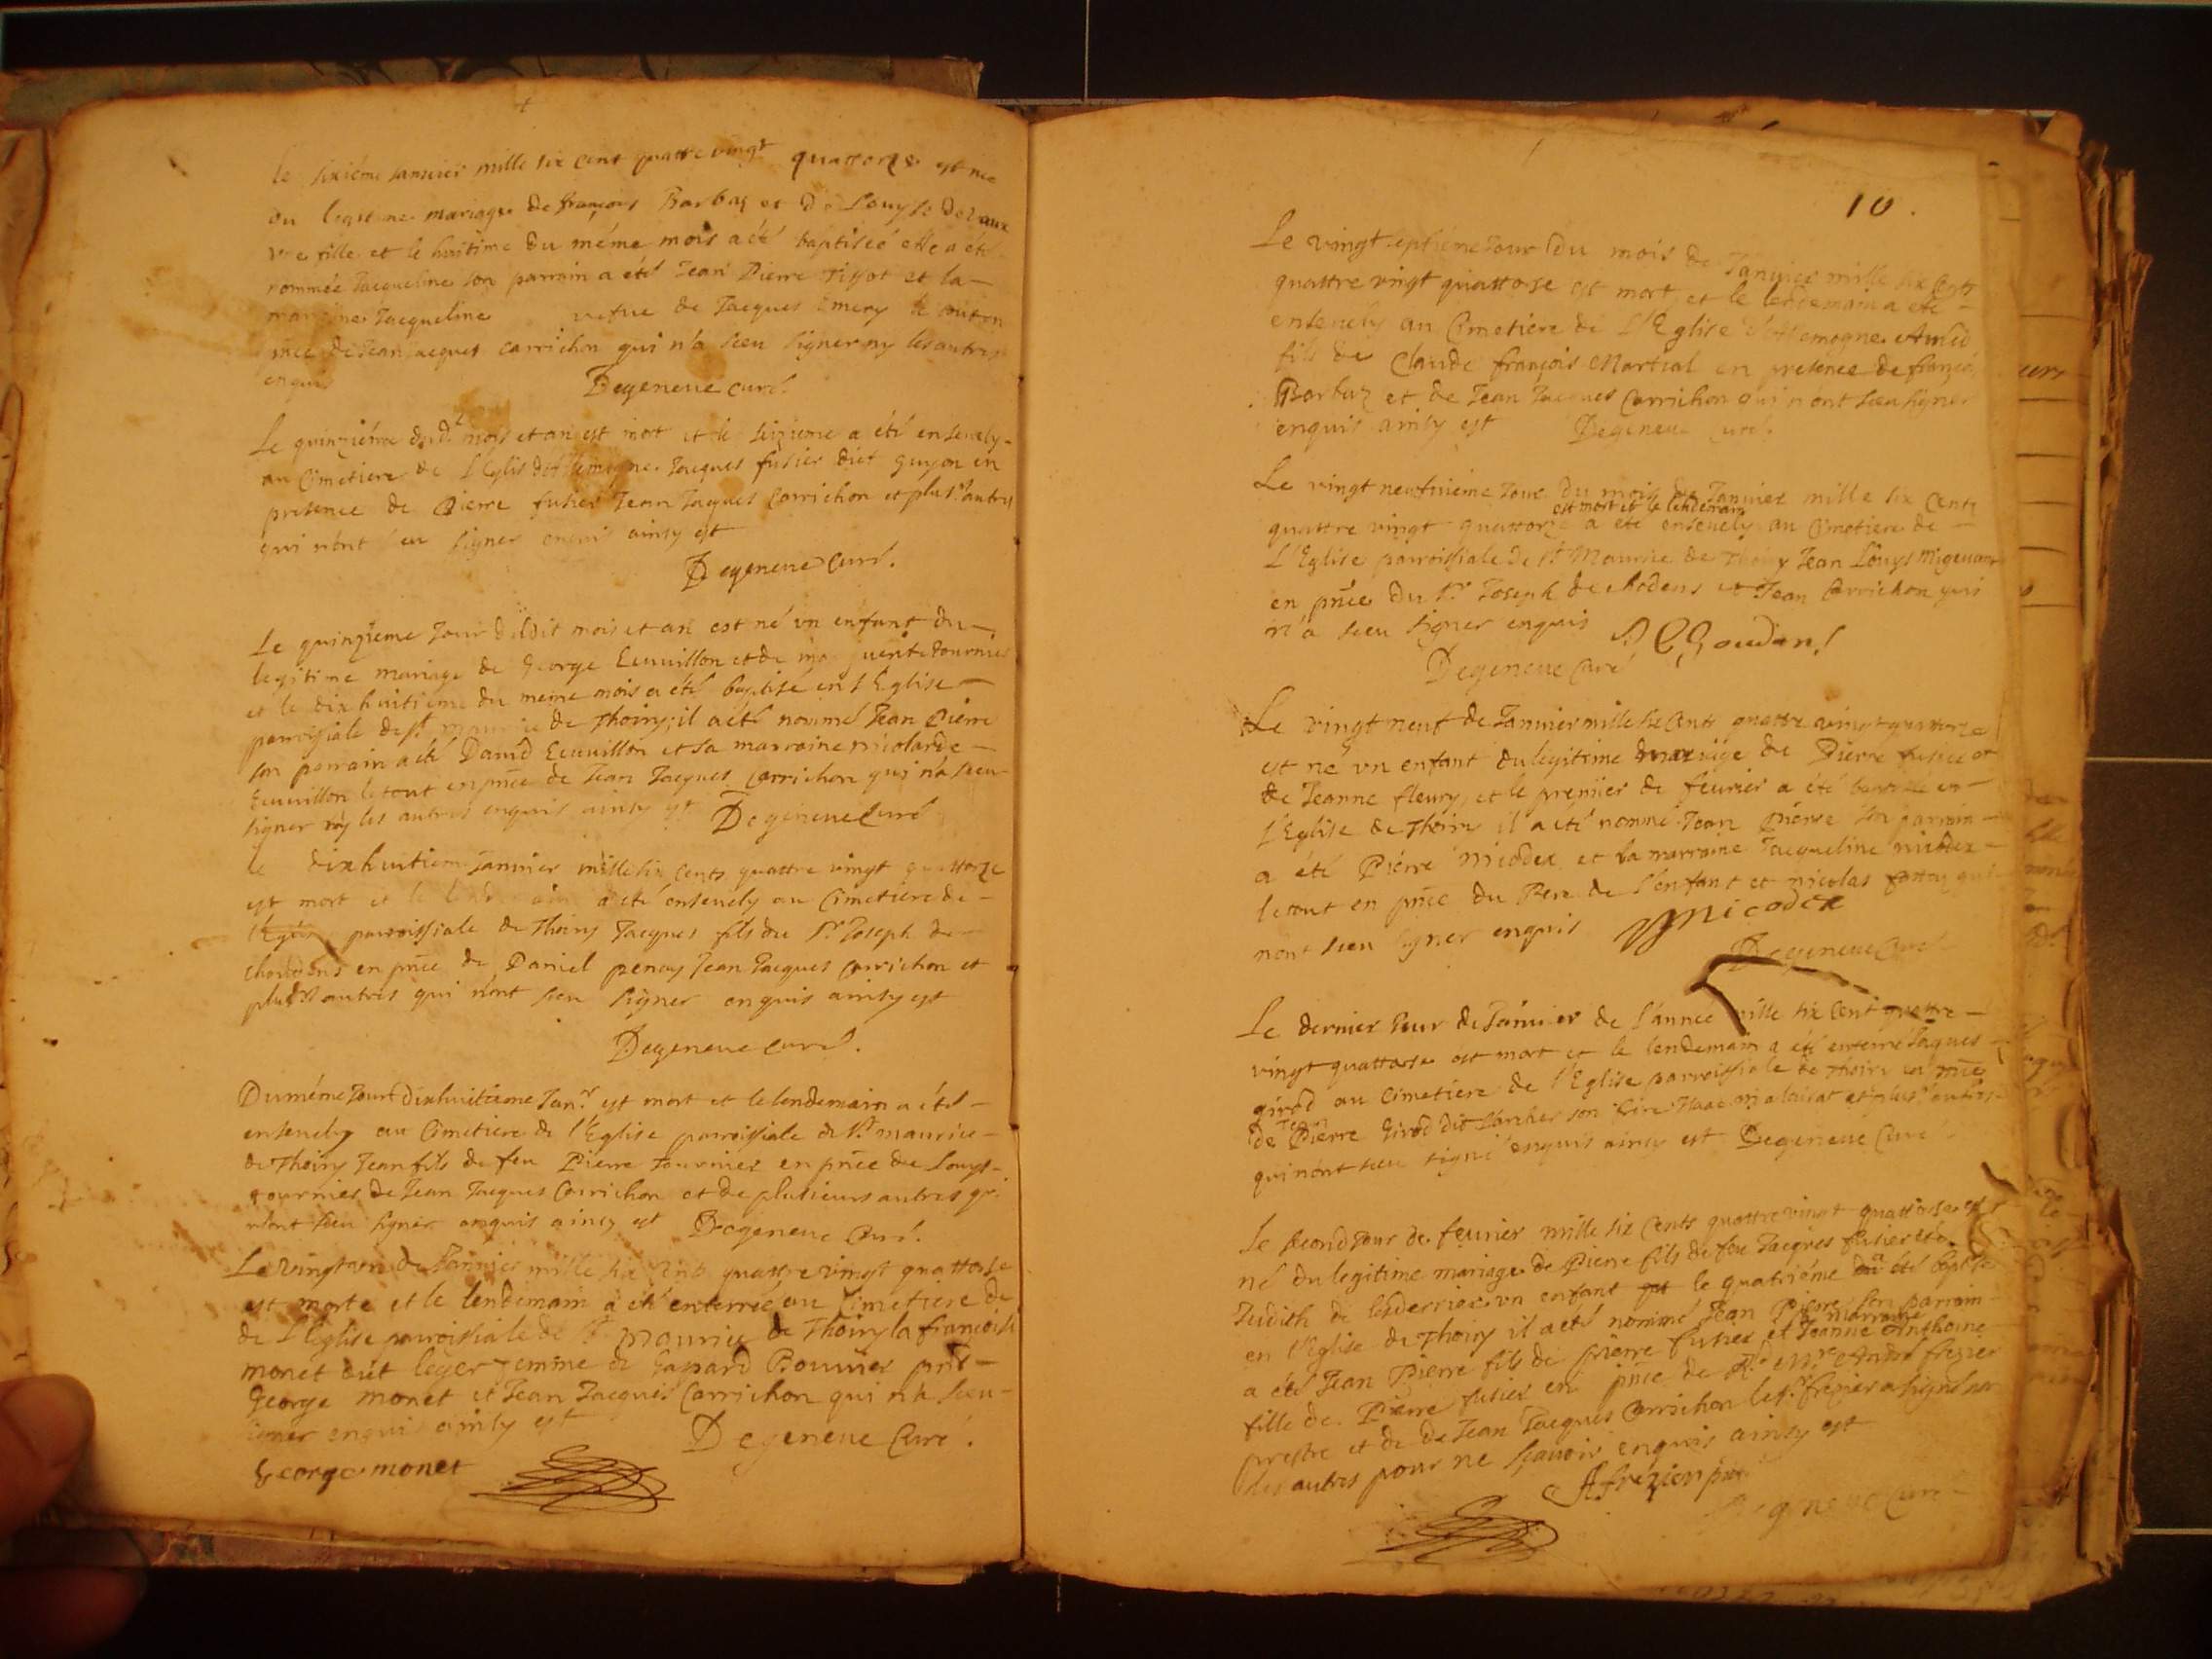 le sixiéme Januier mille six cent quatre vingt quattorze est née
du legitime mariage de françois Barbaz et De Louyse Devaux
vne fille et le huitime du méme mois a été baptiseé elle a été
nommée Jacqueline son parrain a été Jean Pierre Tissot et la
marraine Jacqueline vefue de Jacques Emery le tout en
pn̄ce de Jean Jacques carrichon qui n'a sceu signer ny les autres
enquis Degeneue curé.
Le quinziéme dud.t mois et an est mort et le seizieme a été enseuely
au Cimetiere de l'Eglise d'Allemogne Jacques fusier dict guyon en
presence de Pierre fusier Jean Jacques Carrichon et plusrs autres
qui n'ont sceu signer enquis ainsy est
Degeneue Curé.
Le quinzieme Jour dudit mois et an est né vn enfant du
legitime mariage de George Ecuuillon et de marguerite tournier
et le dixhuitiéme du meme mois a été baptisé en l'Eglise
parroissiale de st maurice de Thoiry, il a été nommé Jean Pierre
son parrain a été Dauid Ecuuillon et sa marraine nicolarde
Ecuuillon le tout en pn̄ce de Jean Jacques Carrichon qui n'a sceu
signer ny les autres enquis ainsy est Degeneue Curé
le dixhuitiem Januier mille six Cents quattre vingt quattorze
est mort et le lendemain a été enseuely au Cimetiere de
l'Eglise parroissiale de Thoiry Jacques fils du Sr Joseph de
Choudens en pn̄ce de Daniel penay Jean Jacques Carrichon et
plusrs autres qui n'ont sceu signer enquis ainsy est
Degeneue curé.
Du méme Jour dixhuitieme Janr est mort et le lendemain a été
enseuely au Cimetiere de l'Eglise parroissiale de St maurice
de Thoiry Jean fils de feu Pierre Tournier en pn̄ce de Louys
tournier de Jean Jacques Carrichon et de plusieurs autres qui
n'ont sceu signer enquis ainsy est Degeneue Curé.
Le vingt de Januier mille six Cents quattre vingt quattorse
est morte et le lendemain a été enterreé au Cimetiere de
de L'Eglise parroissiale de St maurice de Thoiry la françoise
monet dict leger femme de Gaspard Bouuier pnt
George monet et Jean Jacques Carrichon qui n'a sceu
signer enquis ainsy est Degeneue Curé.
George monet
10.
Le vingt septiéme Jour du mois de Januier mille six Cents
quattre vingt quattorse est mort et le lendemain a été
enseuely au Cimetiere de L'Eglise d'Allemogne Amed
fils de Claude françois Martial en presence de françois
Barbaz et de Jean Jacques Carrichon qui n'ont sceu signer
enquis ainsy est Degeneue Curé.
Le vingt neufuieme Jour du mois de Januier mille six Cents
est mort et le lendemain
quattre vingt quattorze a été enseuely au Cimetiere de
L'Eglise parroissiale de St Maurice de Thoiry Jean Louys
en pn̄ce du Sr Joseph de chodens et Jean Carrichon qui
n'a sceu signer enquis
Degeneue Curé
Le vingt neuf de Januier mille six Cents quattre vingt quattorze
est né vn enfant du legitime mariage de Pierre fusier et
de Jeanne fleury, et le premiier de feurier a été baptizé en
l'Eglise de Thoiry il a été nommé Jean Pierre son parrain
a été Pierre Nicodex et la marraine Jacqueline nicodex
le tout en pn̄ce du Pere de l'enfant et nicolas qui
n'ont sceu signer enquis Nicodex
Degeneue Curé
Le dernier Jour de Januier de l'année mille six Cent quattre
vingt quattorse est mort et le lendemain a été enterré Jaques
girod au Cimetiere de l'Eglise parroissiale de Thoiri en pn̄ce
de Pierre Girod dit son Pere Isaac et plusrs autres
qui n'ont sceu signé enquis ainsy est Degeneue Curé
Le second Jour de feurier mille six Cents quattre vingt quattorse est
né du legitime mariage de Pierre fils de feu Jacques fusier et de
Judith de vn enfant le quatriéme a été baptisé
en l'Eglise de Thoiry il a été nommé Jean Pierre son parrain
a été Jean Pierre fils de pierre fusier et la marraine Jeanne Anthoine
fille de Pierre fusier en pn̄ce de Rd Mre André frezier
prestre et de de Jean Jacques Carrichon led. Sr frezier a signé non
les autres pour ne sçauoir enquis ainsy est
A frezier ptre
Degeneue Curé